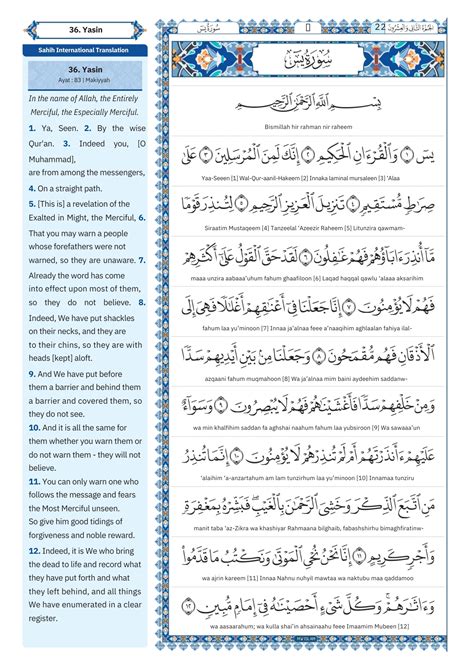 36. Yasin
Sahih International Translation
36. Yasin
Ayat : 83 | Makiyyah
In the name of Allah, the Entirely
Merciful, the Especially Merciful.
1. Ya, Seen. 2. By the wise
Qur'an. 3. Indeed you, [O
Muhammad],
are from among the messengers,
4. On a straight path.
5. [This is] a revelation of the
Exalted in Might, the Merciful, 6.
That you may warn a people
whose forefathers were not
warned, so they are unaware. 7.
Already the word has come
into effect upon most of them,
so they do not believe. 8.
Indeed, We have put shackles
on their necks, and they are
to their chins, so they are with
heads [kept] aloft.
9. And We have put before
them a barrier and behind them
a barrier and covered them, so
they do not see.
10. And it is all the same for
them whether you warn them or
do not warn them - they will not
believe.
11. You can only warn one who
follows the message and fears
the Most Merciful unseen.
So give him good tidings of
forgiveness and noble reward.
12. Indeed, it is We who bring
the dead to life and record what
they have put forth and what
they left behind, and all things
We have enumerated in a clear
register.
سُورَةُ يسٓ
الجُزءُ الثَّانِي وَالعِشْرُونَ 22
سُورَةُ يسٓ
بِسْمِ اللَّهِ الرَّحْمَٰنِ الرَّحِيمِ
Bismillah hir rahman nir raheem
يسٓ ١ وَالْقُرْءَانِ الْحَكِيمِ ٢ إِنَّكَ لَمِنَ الْمُرْسَلِينَ ٣ عَلَىٰ
Yaa-Seeen [1] Wal-Qur-aanil-Hakeem [2] Innaka laminal mursaleen [3] 'Alaa
صِرَاطٍ مُّسْتَقِيمٍ ٤ تَنزِيلَ الْعَزِيزِ الرَّحِيمِ ٥ لِتُنذِرَ قَوْمًا
Siraatim Mustaqeem [4] Tanzeelal 'Azeezir Raheem [5] Litunzira qawmam-
مَّا أُنذِرَ ءَابَاؤُهُمْ فَهُمْ غَٰفِلُونَ ٦ لَقَدْ حَقَّ الْقَوْلُ عَلَىٰ أَكْثَرِهِمْ
maaa unzira aabaaa'uhum fahum ghaafiloon [6] Laqad haqqal qawlu 'alaaa aksarihim
فَهُمْ لَا يُؤْمِنُونَ ٧ إِنَّا جَعَلْنَا فِي أَعْنَٰقِهِمْ أَغْلَٰلًا فَهِيَ إِلَى
fahum laa yu'minoon [7] Innaa ja'alnaa feee a'naaqihim aghlaalan fahiya ilal-
الْأَذْقَانِ فَهُم مُّقْمَحُونَ ٨ وَجَعَلْنَا مِن بَيْنِ أَيْدِيهِمْ سَدًّا
azqaani fahum muqmahoon [8] Wa ja'alnaa mim baini aydeehim saddanw-
وَمِنْ خَلْفِهِمْ سَدًّا فَأَغْشَيْنَٰهُمْ فَهُمْ لَا يُبْصِرُونَ ٩ وَسَوَاءٌ
wa min khalfihim saddan fa aghshai naahum fahum laa yubsiroon [9] Wa sawaaa'un
عَلَيْهِمْ ءَأَنذَرْتَهُمْ أَمْ لَمْ تُنذِرْهُمْ لَا يُؤْمِنُونَ ١٠ إِنَّمَا تُنذِرُ
'alaihim 'a-anzartahum am lam tunzirhum laa yu'minoon [10] Innamaa tunziru
مَنِ اتَّبَعَ الذِّكْرَ وَخَشِيَ الرَّحْمَٰنَ بِالْغَيْبِ ۖ فَبَشِّرْهُ بِمَغْفِرَةٍ
manit taba 'az-Zikra wa khashiyar Rahmaana bilghaib, fabashshirhu bimaghfiratinw-
وَأَجْرٍ كَرِيمٍ ١١ إِنَّا نَحْنُ نُحْيِ الْمَوْتَىٰ وَنَكْتُبُ مَا قَدَّمُوا
wa ajrin kareem [11] Innaa Nahnu nuhyil mawtaa wa naktubu maa qaddamoo
وَءَاثَٰرَهُمْ ۚ وَكُلَّ شَيْءٍ أَحْصَيْنَٰهُ فِي إِمَامٍ مُّبِينٍ ١٢
wa aasaarahum; wa kulla shai'in ahsainaahu feee [Imaamim Mubeen [12]